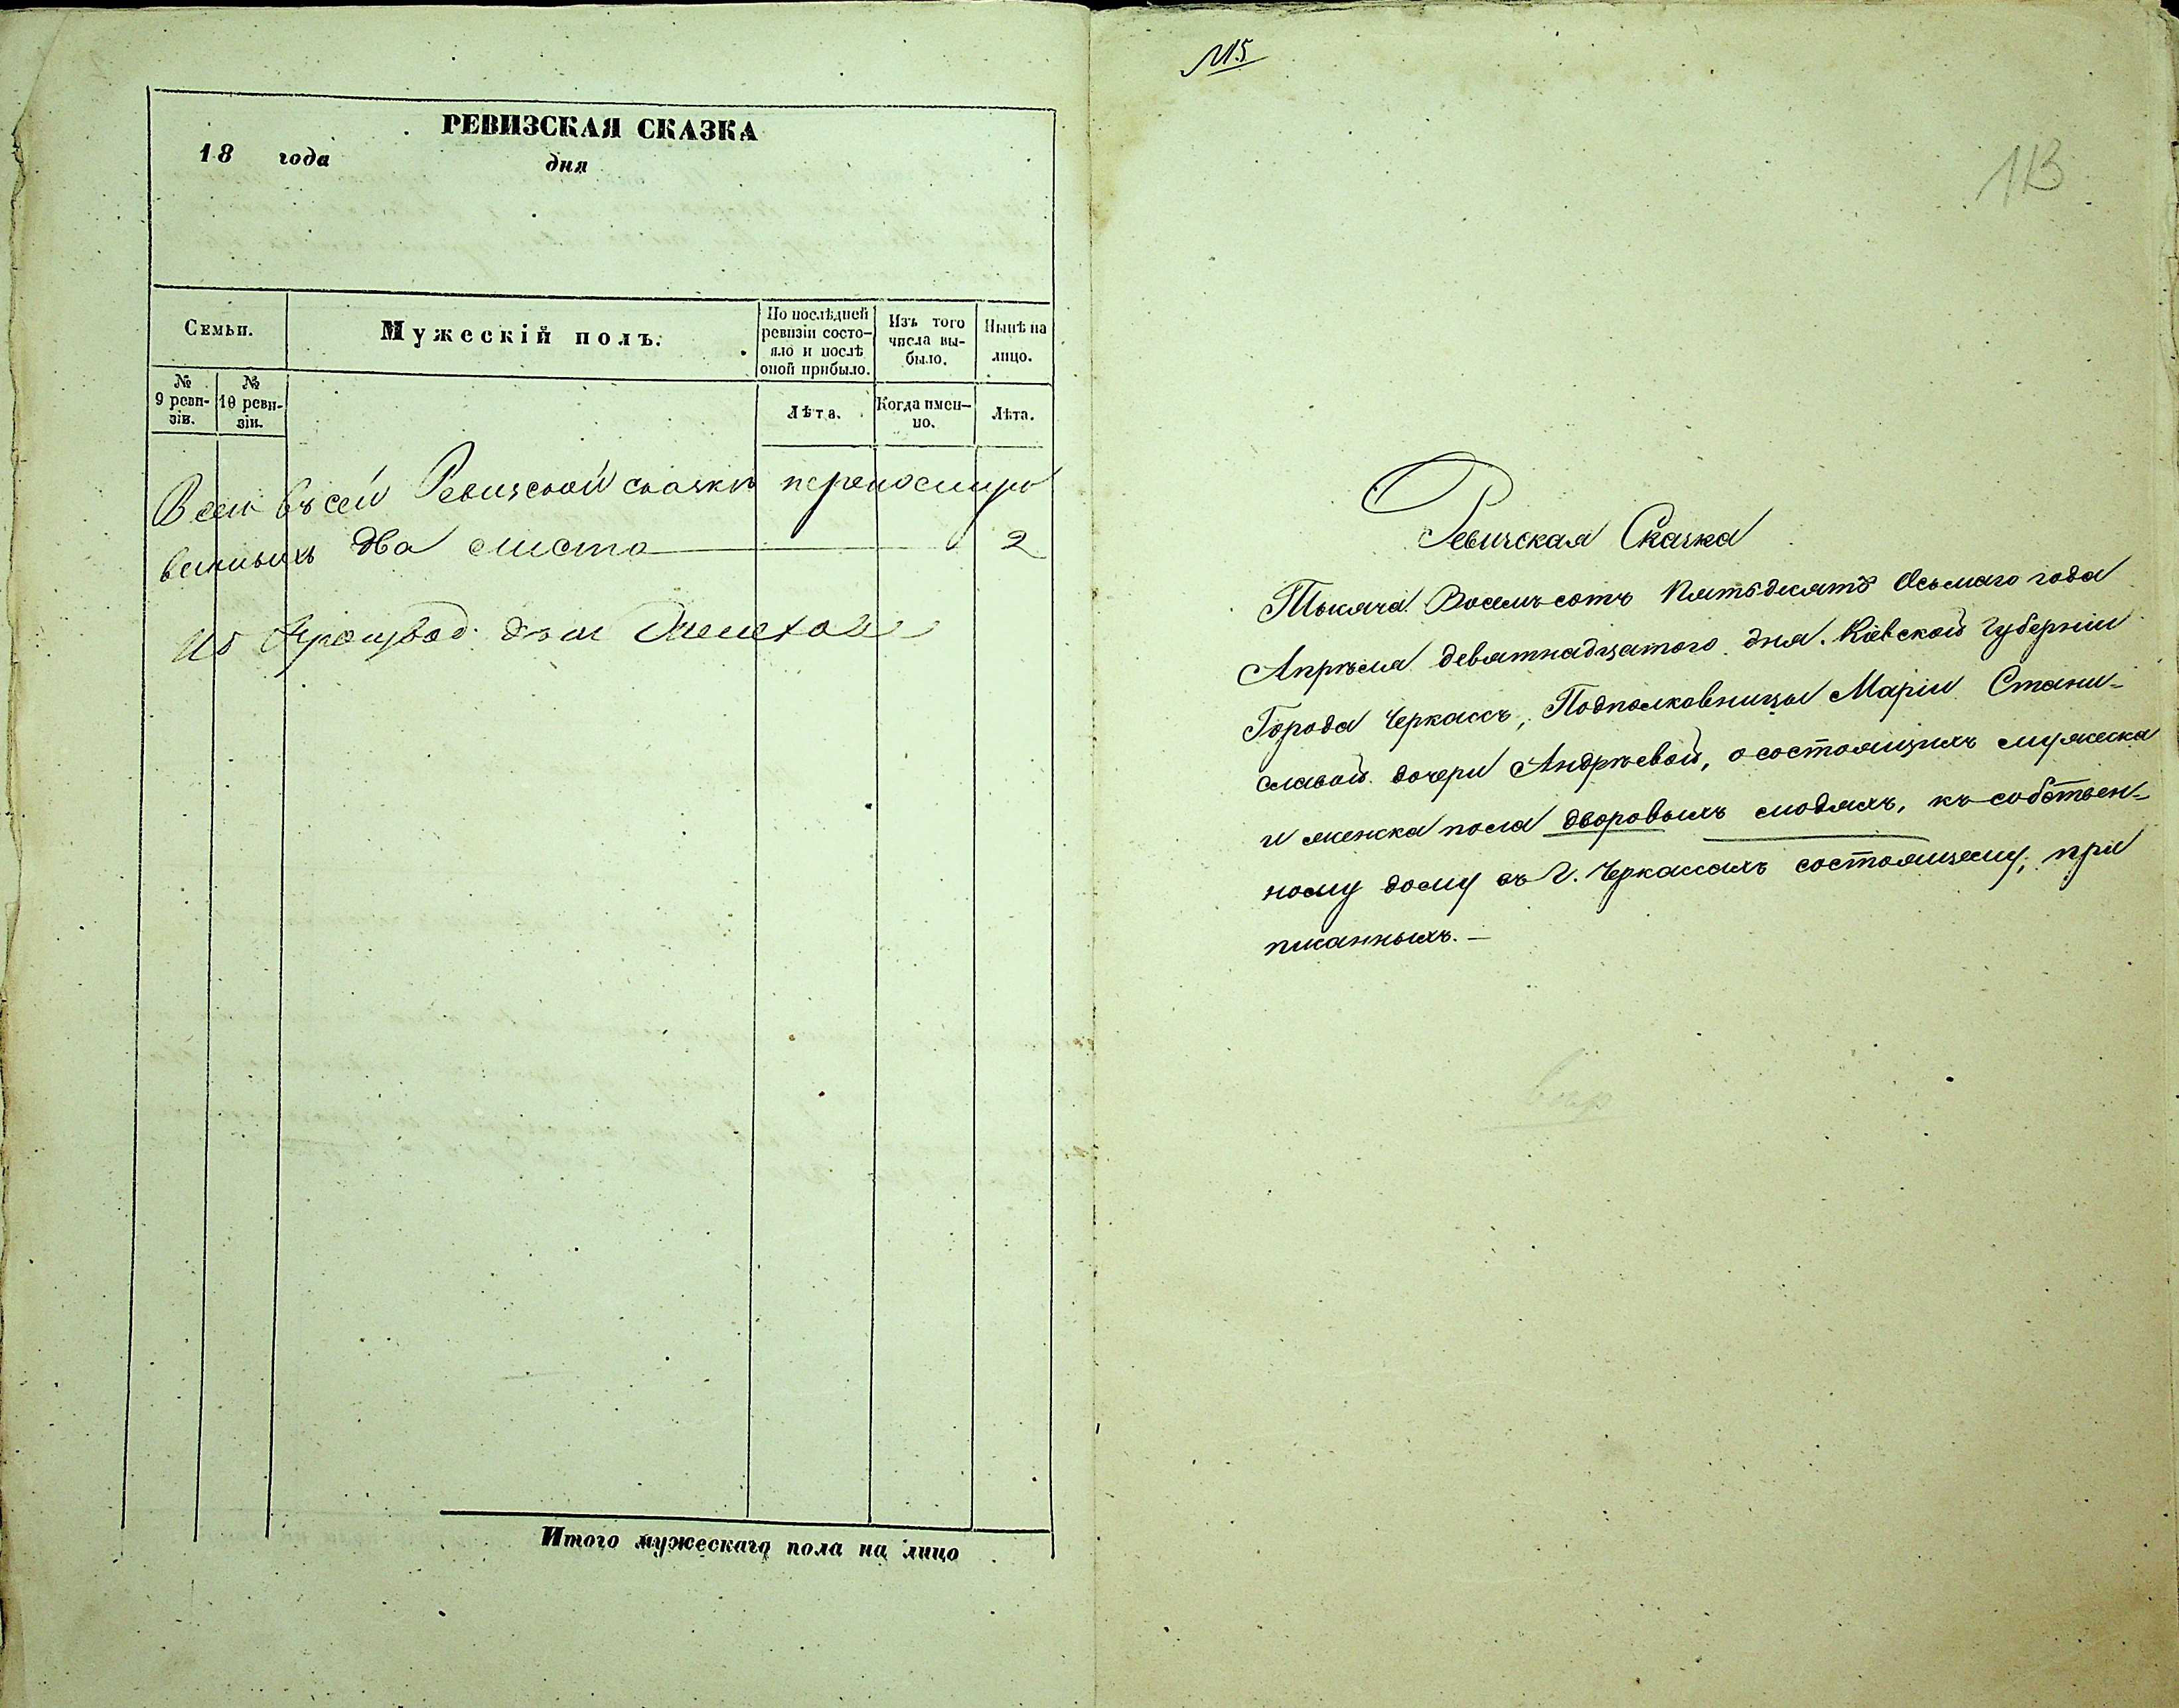 РЕВИЗСКАЯ СКАЗКА
18 года дня
Семьи.
Мужескій полъ.
По послѣдней ревизіи состо-
яло и послѣ оной прибыло.
Изъ того числа вы-
было.
Нынѣ на лицо.
№ 9 реви-
зіи.
№ 10 реви-
зіи.
Лѣта.
Когда имен-
но.
Лѣта.
Всего въ сей Ревизской сказкѣ перенумеро
ванныхъ два листа 2
Итого мужескаго пола на лицо
№5
113
Ревизская Сказка
Тысяча Восемьсотъ Пятьдесятъ Осьмаго года
Апрѣля девятнадцатого дня. Кіевской Губерніи
Города Черкассъ, Подполковницы Маріи Стани-
славой дочери Андрѣевой, о состоящихъ мужеска
и женска пола дворовыхъ людяхъ, къ собствен-
ному дому въ Г. Черкассахъ состоящему, при
писанныхъ. —